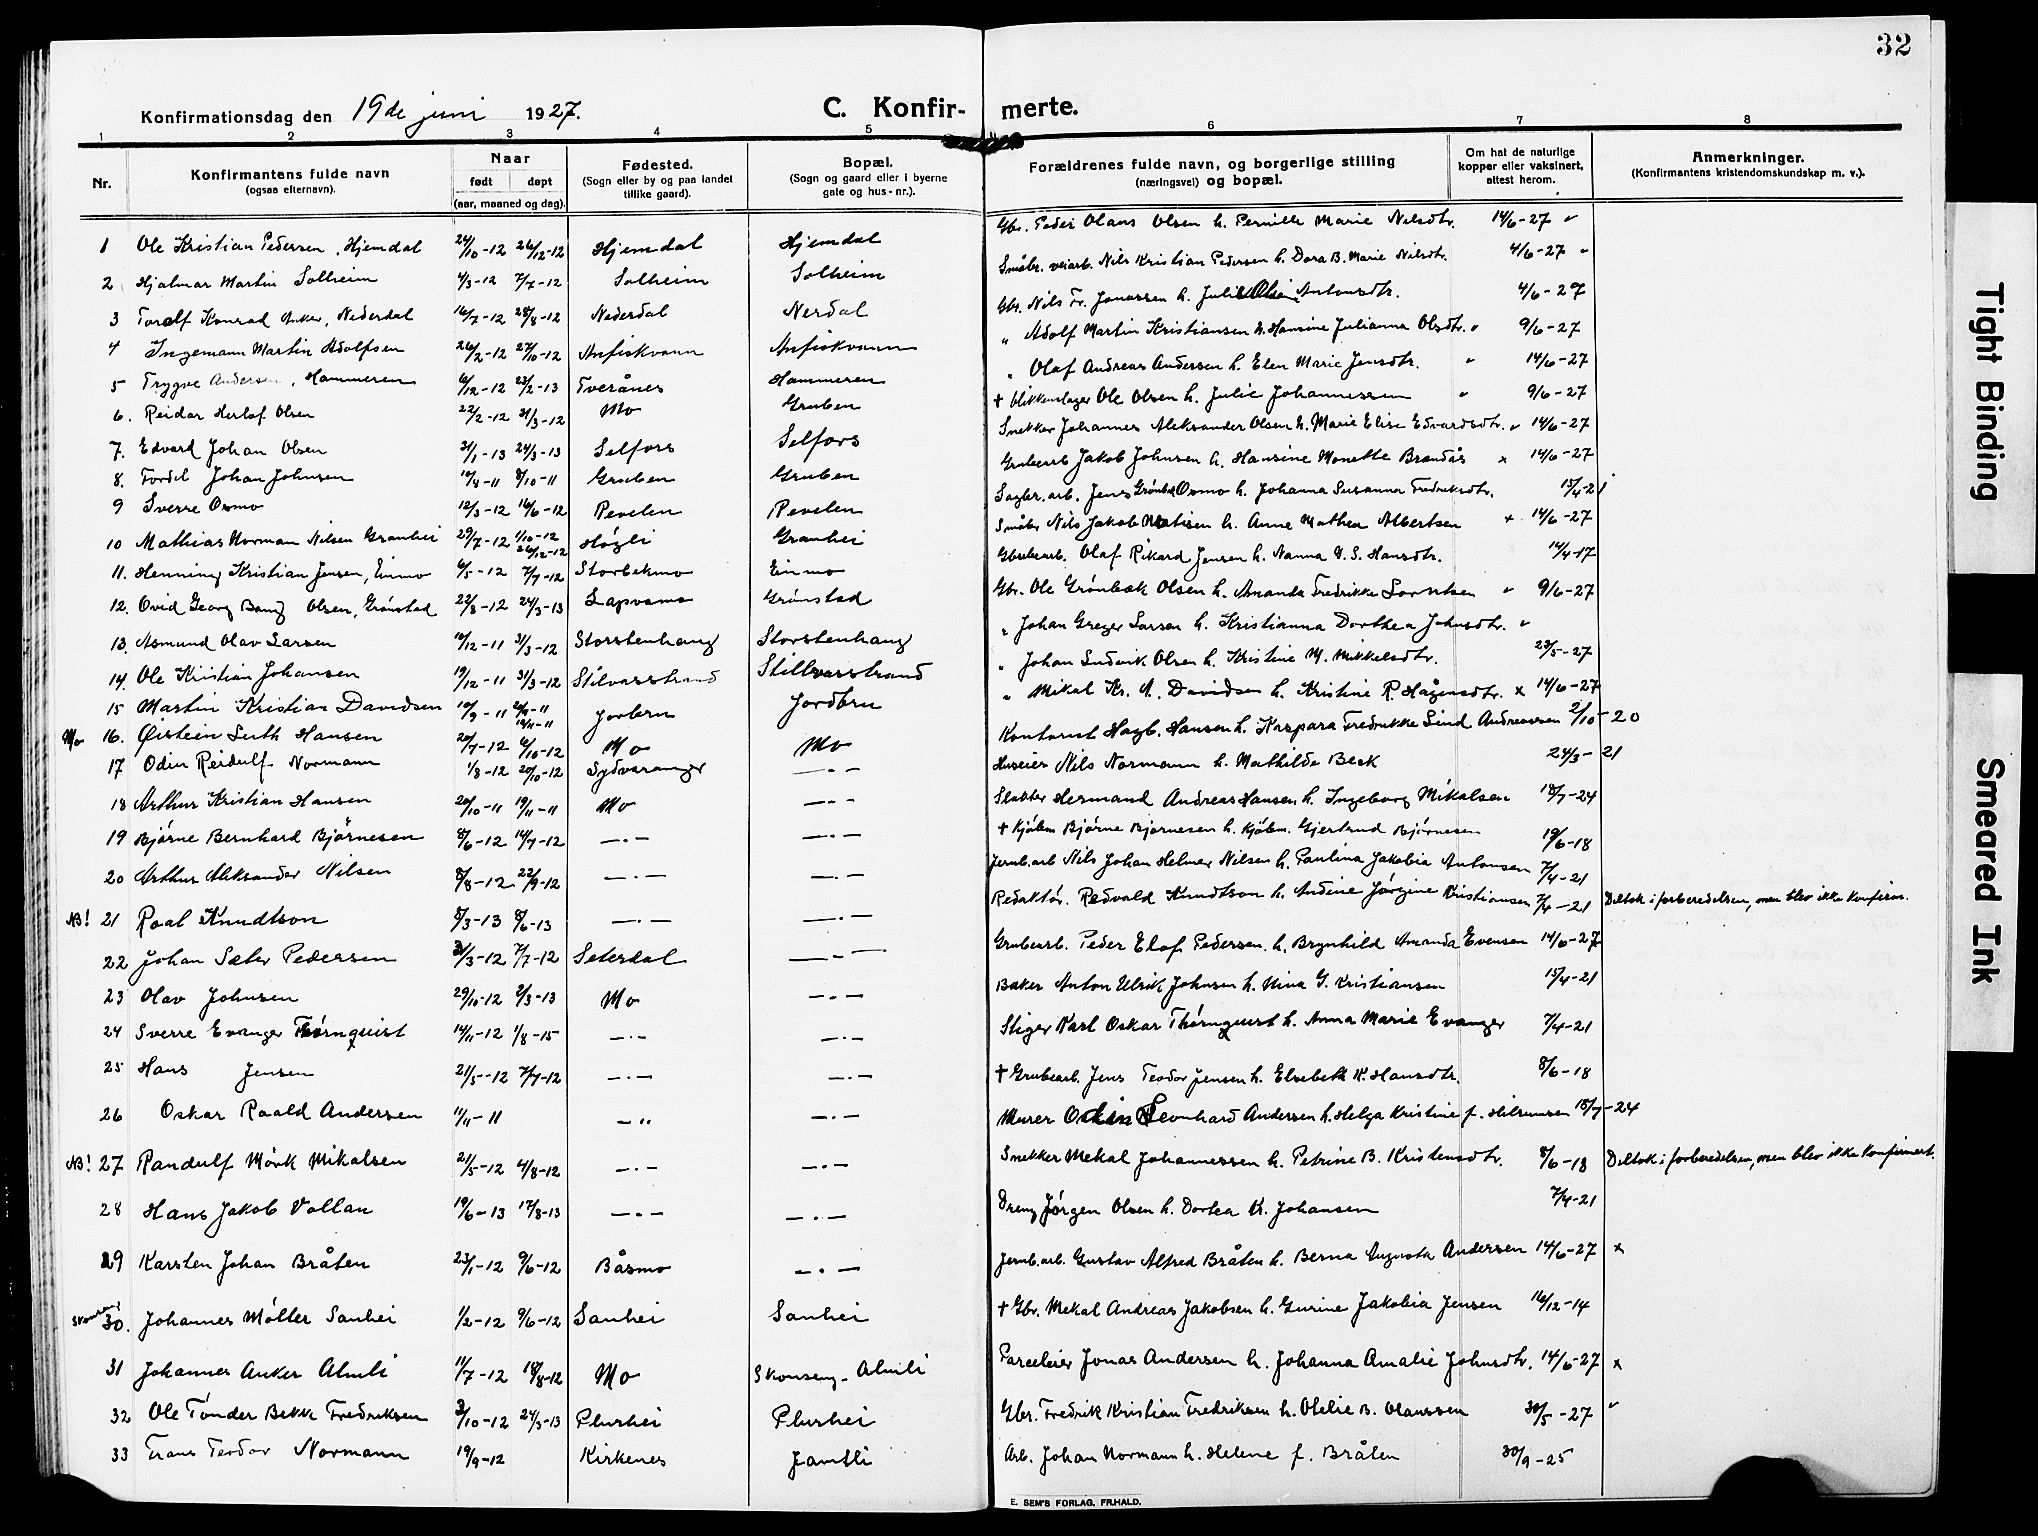 32
Konfirmationsdag den 19de juni 1927. C. Konfir- merte.
1 2 3 4 5 6 7 8
Nr. Konfirmantens fulde navn (ogsaa efternavn). Naar født døpt (aar, maaned og dag). Fødested. (Sogn eller by og paa landet tillike gaard). Bopæl. (Sogn og gaard eller i byerne gate og hus-nr.). Forældrenes fulde navn, og borgerlige stilling (næringsvei) og bopæl. Om hat de naturlige kopper eller vaksinert, attest herom. Anmerkninger. (Konfirmantens kristendomskundskap m. v.).
1 Ole Kristian Pedersen, Hjemdal 24/10-12 26/12-12 Hjemdal Hjemdal Gbr. Peder Olaus Olsen h. Pernille Marie Nilsdtr. 14/6-27 "
2 Hjalmar Martin Solheim 4/3-12 7/7-12 Solheim Solheim Småbr. veiarb. Nils Kristian Pedersen h. Dora B. Marie Nilsdtr. 4/6-27 "
3 Toralf Konrad Anker, Nederdal 16/7-12 28/8-12 Nederdal Nerdal Gbr. Nils Fr. Jonassen h. Antonsdtr. 4/6-27
4 Ingemann Martin Adolfsen 26/2-12 27/10-12 Anfiskvann Anfiskvann " Adolf Martin Kristiansen h. Hansine Julianna Olsdtr. " 9/6-27
5 Trygve Andersen, Hammeren 6/12-12 23/2-13 Tverånes Hammeren " Olaf Andreas Andersen h. Elen Marie Jensdtr. " 14/6-27
6. Reidar Herlof Olsen 22/2-12 31/3-12 Mo Gruben + blikkenslager Ole Olsen h. Julie Johannessen " 9/6-27
7. Edvard Johan Olsen 31/1-13 24/3-13 Selfors Selfors Snekker Johannes Aleksander Olsen h. Marie Elise Edvardsdtr. " 14/6-27
8. Johan Johnsen 14/4-11 8/10-11 Gruben Gruben Grubearb. Jakob Johnsen h. Hansine Monette Brendås x 14/6-27
9 Sverre Osmo 12/3-12 16/6-12 Revelen Revelen Sagbr. arb. Jens Grønbek Osmo h. Johanna Susanna Fredriksdtr. 15/4-21
10 Mathias Norman Nilsen Granhei 29/7-12 1/10-12 26/12-12 Høgli Granhei Småbr Nils Jakob Matisen h. Anne Mathea Albertsen + 14/6-27
11. Henning Kristian Jensen, Einmo 6/5-12 7/7-12 Storbekmo Einmo Grubearb. Olaf Rikard Jensen h. Nanna U. S. Hansdtr. 14/4-17
12. Ovid Georg Bang Olsen, Grønstad 22/8-12 24/3-13 Lapvama Grønstad Gbr. Ole Grønbæk Olsen h. Amanda Fredrikke Lorntsen " 9/6-27
13. Asmund Olav Larsen 10/12-11 31/3-12 Storstenhaug Storstenhaug " Johan Greger Larsen h. Kristianna Dorthea Johnsdtr. "
14. Ole Kristian Johansen 19/12-11 31/3-12 Stilvasstrand Stillvasstrand " Johan Ludvik Olsen h. Kristine M. Mikkelsdtr. 23/5-27
15 Martin Kristian Davidsen 10/9-11 19/11-11 Jorbru Jordbru " Mikal Kr. A. Davidsen h. Kristine R. Hågensdtr. x 14/6-27
Mo 16. Øistein Hansen 20/7-12 6/10-12 Mo Mo Kontorist Hagb. Hansen h. Kaspara Fredrikke Lind Andreassen 2/10-20
17 Odin Reidulf Normann 1/8-12 20/10-12 Sydvaranger —·— Huseier Nils Normann h. Mathilde Beck 24/3-21
18 Arthur Kristian Hansen 20/10-11 19/11-11 Mo —·— Slakter Hermand Andreas Hansen h. Ingeborg Mikalsen 18/7-24
19 Bjørne Bernhard Bjørnesen 8/6-12 14/7-12 —·— —·— + Kjøbm Bjørne Bjørnesen h. Kjøbm. Gjertrud Bjørnesen 19/6-18
20 Arthur Aleksander Nilsen 8/8-12 22/9-12 —·— —·— Jernb.arb Nils Johan Helmer Nilsen h. Paulina Jakobia Antonsen 7/4-21
NB! 21 Roal Knudtson 8/3-13 8/6-13 —·— —·— Redaktør. Redvald Knudtson h. Andine Jørgine Kristiansen 7/4-21 Deltok i forberedelsen, men blev ikke konfirm.
22 Johan Sæter Pedersen 31/3-12 7/7-12 Seterdal —·— Grubearb. Peder Elof Pedersen h. Brynhild Amanda Evensen 14/6-27
23 Olav Johnsen 29/10-12 2/3-13 Mo —·— Baker Anton Ulrik Johnsen h. Nina G. Kristiansen 15/4-21
24 Sverre Evanger Thørnquist 14/11-12 1/8-15 —·— —·— Stiger Karl Oskar Thørnquist h. Anna Marie Evanger 7/4-21
25 Hans Jensen 21/5-12 7/7-12 —·— —·— + Grubearb. Jens Teodor Jensen h. Elsebeth K. Hansdtr. 8/6-18
26 Oskar Roald Andersen 11/11-11 —" —·— Murer Odin Leonhard Andersen h. Helga Kristine f. 18/7-24
NB! 27 Randulf Mørk Mikalsen 21/5-12 4/8-12 —·— —·— Snekker Mekal Johannessen h. Petrine B. Kristensdtr. 8/6-18 Deltok i forberedelsen, men blev ikke konfirmert.
28 Hans Jakob Vollan 19/6-13 17/8-13 —·— —·— Dreng Jørgen Olsen h. Dortea K. Johansen 7/4-21
29 Karsten Johan Bråten 23/1-12 9/6-12 Båsmo —·— Jernb.arb. Gustav Alfred Bråten h. Berna Augusta Andersen 14/6-27 x
30. Johannes Møller Sanhei 1/2-12 9/6-12 Sanhei Sanhei + Gbr. Mekal Andreas Jakobsen h. Gurine Jakobia Jensen 16/12-14
31 Johannes Anker Almli 11/7-12 18/8-12 Mo Skonseng-Almli Parceleier Jonas Andersen h. Johanna Amalie Johnsdtr. 14/6-27 x
32 Ole Tønder Bekk Fredriksen 3/10-12 24/3-13 Plurhei Plurhei Gbr. Fredrik Kristian Fredriksen h. Olelie B. Olaussen 30/5-27 "
33 Frans Teodor Normann 19/9-12 Kirkenes Jamtli Arb. Johan Normann h. Helene f. Bråten 30/9-25
E. SEM'S FORLAG, FR.HALD.
Tight Binding
Smeared Ink